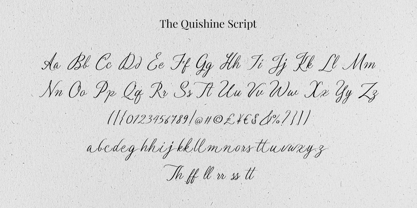 The Quishine Script
Aa Bb Cc Dd Ee Ff Gg Hh Ii Jj Kk Ll Mm
Nn Oo Pp Qq Rr Ss Tt Uu Vv Ww Xx Yy Zz
abcdeghhijkllmnorsttuvwxyz
Th ff ll rr ss tt